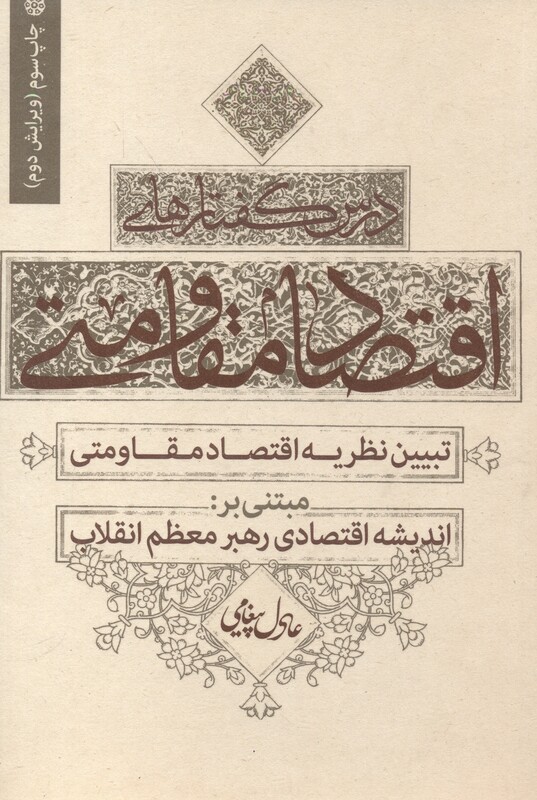 چاپ سوم (ویرایش دوم)
درس گفتارهای
اقتصاد مقاومتی
تبیین نظریه اقتصاد مقاومتی
مبتنی بر:
اندیشه اقتصادی رهبر معظم انقلاب
عادل پیغامی